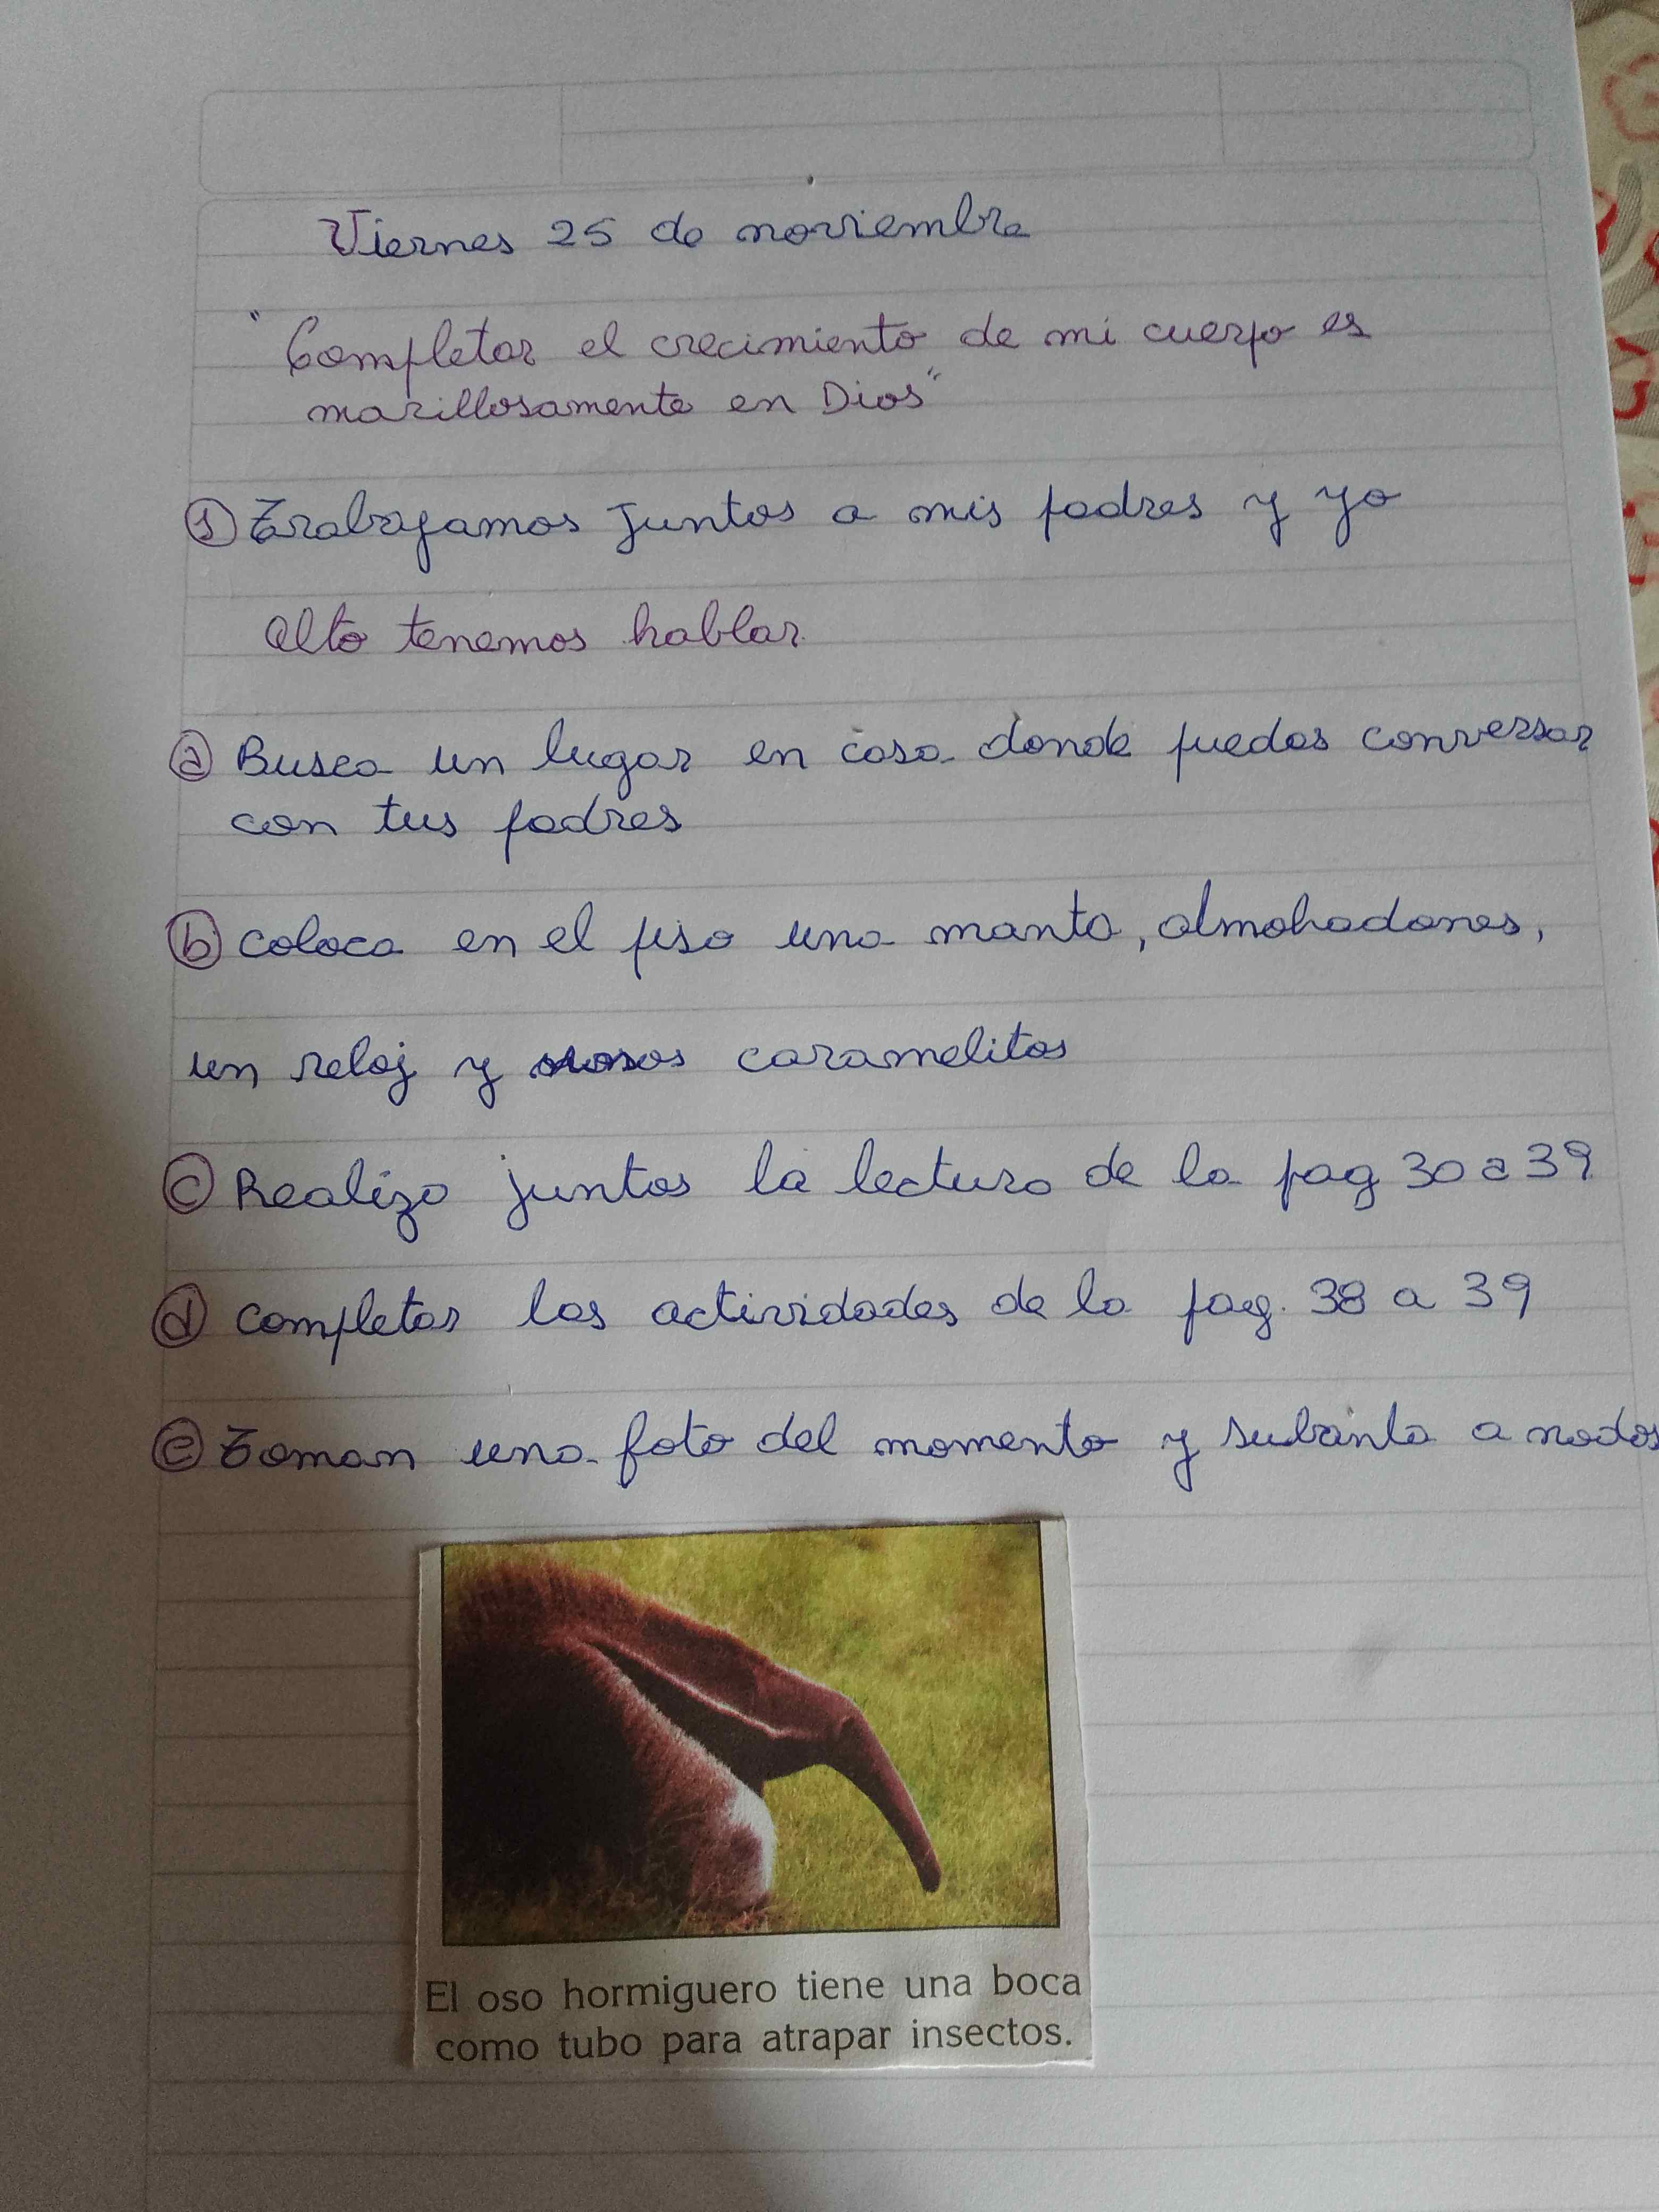 Viernes 25 de noviembre
"Completar el crecimiento de mi cuerpo es
marillosamente en Dios"
① Trabajamos juntos a mis padres y yo
Alto tenemos hablar
ⓐ Busca un lugar en casa donde puedas conversar
con tus padres
ⓑ coloca en el piso una manta, almohadones,
un reloj y caramelitos
ⓒ Realizo juntos la lectura de la pag 30 a 39
ⓓ completar las actividades de la pag. 38 a 39
ⓔ Toman una foto del momento y subanla a nodos
El oso hormiguero tiene una boca
como tubo para atrapar insectos.